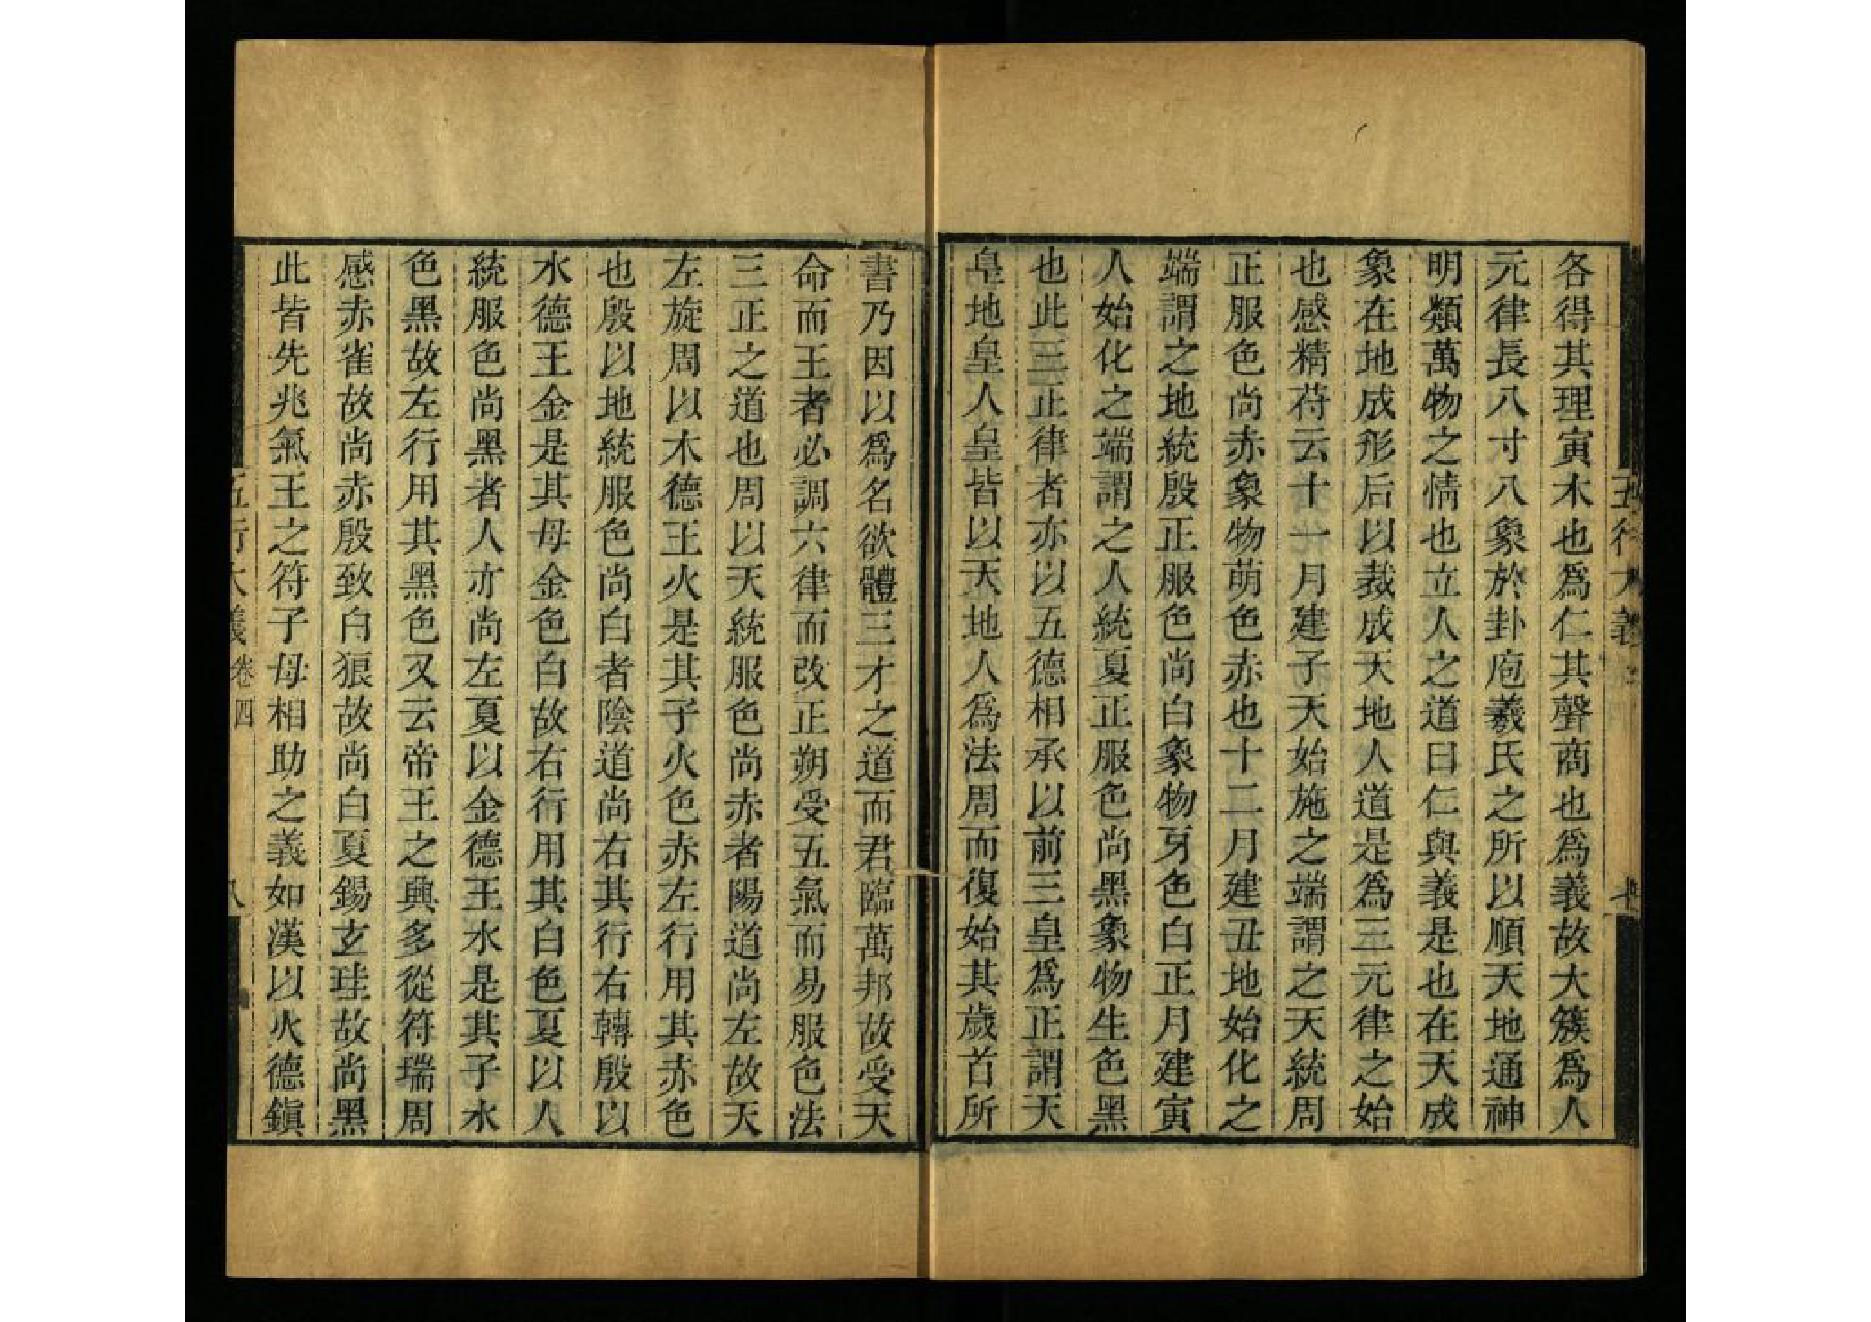 各得其理寅木也爲仁其聲商也爲義故大簇爲人
元律長八寸八象於卦庖羲氏之所以順天地通神
明類萬物之情也立人之道曰仁與義是也在天成
象在地成形后以裁成天地人道是爲三元律之始
也感精苻云十一月建子天始施之端謂之天統周
正服色尚赤象物萌色赤也十二月建丑地始化之
端謂之地統殷正服色尚白象物牙色白正月建寅
人始化之端謂之人統夏正服色尚黑象物生色黑
也此三正律者亦以五德相承以前三皇爲正謂天
皇地皇人皇皆以天地人爲法周而復始其歲首所
書乃因以爲名欲體三才之道而君臨萬邦故受天
命而王者必調六律而改正朔受五氣而易服色法
三正之道也周以天統服色尚赤者陽道尚左故天
左旋周以木德王火是其子火色赤左行用其赤色
也殷以地統服色尚白者陰道尚右其行右轉殷以
水德王金是其母金色白故右行用其白色夏以人
統服色尚黑者人亦尚左夏以金德王水是其子水
色黑故左行用其黑色又云帝王之興多從符瑞周
感赤雀故尚赤殷致白狼故尚白夏錫玄珪故尚黑
此皆先兆氣王之符子母相助之義如漢以火德鎭
五行大義 卷四 八